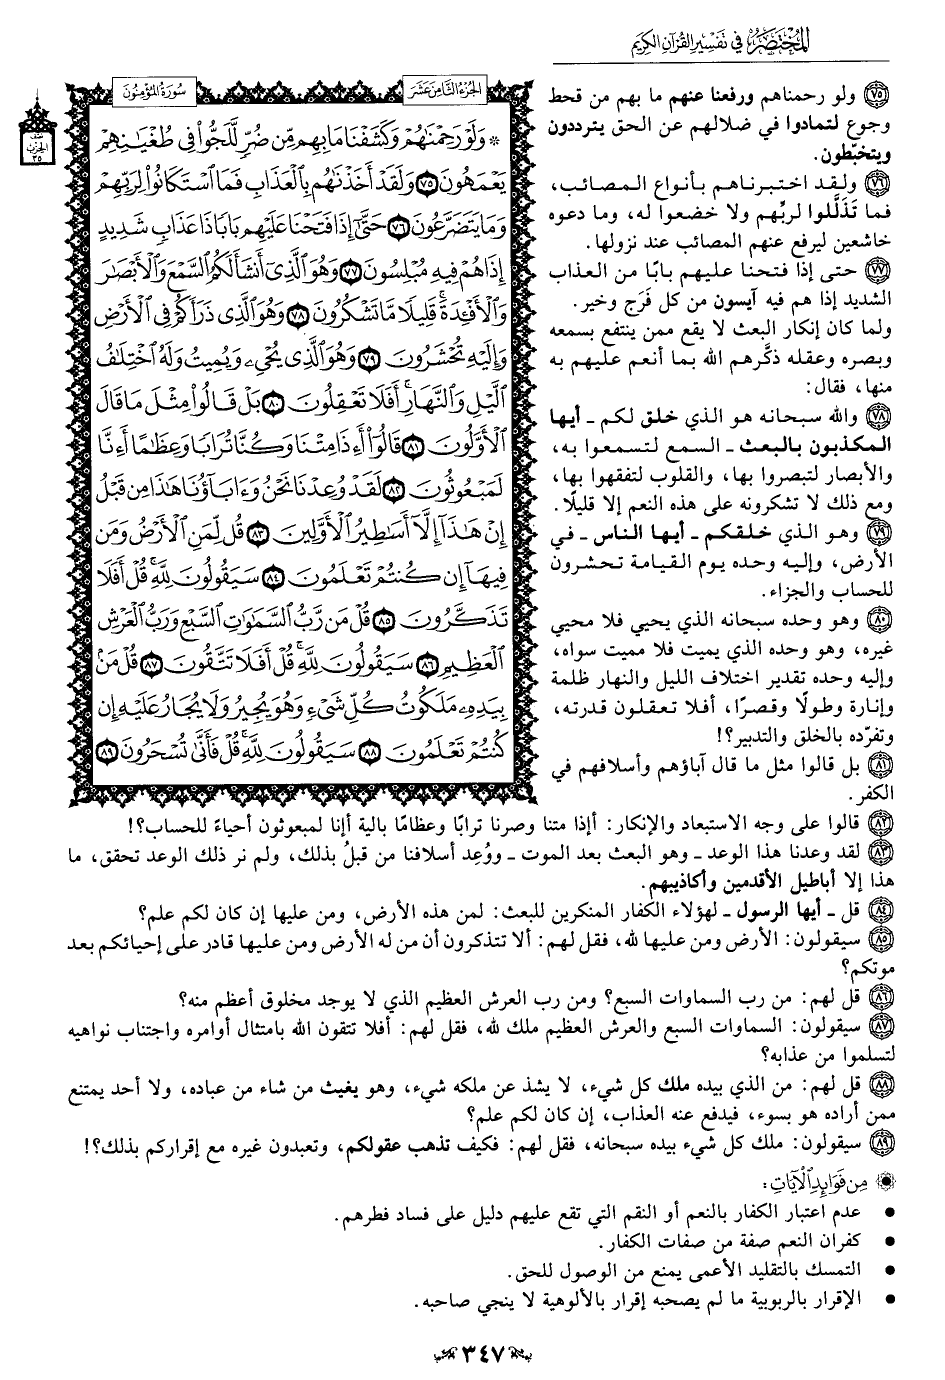 المختصر في تفسير القرآن الكريم
سورة المؤمنون
الجزء الثامن عشر
نصف
الحزب
٣٥
۞ وَلَوْ رَحِمْنَٰهُمْ وَكَشَفْنَا مَا بِهِم مِّن ضُرٍّ لَّلَجُّوا۟ فِى طُغْيَٰنِهِمْ
يَعْمَهُونَ ٧٥ وَلَقَدْ أَخَذْنَٰهُم بِٱلْعَذَابِ فَمَا ٱسْتَكَانُوا۟ لِرَبِّهِمْ
وَمَا يَتَضَرَّعُونَ ٧٦ حَتَّىٰٓ إِذَا فَتَحْنَا عَلَيْهِم بَابًا ذَا عَذَابٍ شَدِيدٍ
إِذَا هُمْ فِيهِ مُبْلِسُونَ ٧٧ وَهُوَ ٱلَّذِىٓ أَنشَأَ لَكُمُ ٱلسَّمْعَ وَٱلْأَبْصَٰرَ
وَٱلْأَفْـِٔدَةَ ۚ قَلِيلًا مَّا تَشْكُرُونَ ٧٨ وَهُوَ ٱلَّذِى ذَرَأَكُمْ فِى ٱلْأَرْضِ
وَإِلَيْهِ تُحْشَرُونَ ٧٩ وَهُوَ ٱلَّذِى يُحْىِۦ وَيُمِيتُ وَلَهُ ٱخْتِلَٰفُ
ٱلَّيْلِ وَٱلنَّهَارِ ۚ أَفَلَا تَعْقِلُونَ ٨٠ بَلْ قَالُوا۟ مِثْلَ مَا قَالَ
ٱلْأَوَّلُونَ ٨١ قَالُوٓا۟ أَءِذَا مِتْنَا وَكُنَّا تُرَابًا وَعِظَٰمًا أَءِنَّا
لَمَبْعُوثُونَ ٨٢ لَقَدْ وُعِدْنَا نَحْنُ وَءَابَآؤُنَا هَٰذَا مِن قَبْلُ
إِنْ هَٰذَآ إِلَّآ أَسَٰطِيرُ ٱلْأَوَّلِينَ ٨٣ قُل لِّمَنِ ٱلْأَرْضُ وَمَن
فِيهَآ إِن كُنتُمْ تَعْلَمُونَ ٨٤ سَيَقُولُونَ لِلَّهِ ۚ قُلْ أَفَلَا
تَذَكَّرُونَ ٨٥ قُلْ مَن رَّبُّ ٱلسَّمَٰوَٰتِ ٱلسَّبْعِ وَرَبُّ ٱلْعَرْشِ
ٱلْعَظِيمِ ٨٦ سَيَقُولُونَ لِلَّهِ ۚ قُلْ أَفَلَا تَتَّقُونَ ٨٧ قُلْ مَنۢ
بِيَدِهِۦ مَلَكُوتُ كُلِّ شَىْءٍ وَهُوَ يُجِيرُ وَلَا يُجَارُ عَلَيْهِ إِن
كُنتُمْ تَعْلَمُونَ ٨٨ سَيَقُولُونَ لِلَّهِ ۚ قُلْ فَأَنَّىٰ تُسْحَرُونَ ٨٩
٧٥ ولو رحمناهم ورفعنا عنهم ما بهم من قحط
وجوع لتمادوا في ضلالهم عن الحق يترددون
ويتخبّطون.
٧٦ ولقد اختبرناهم بأنواع المصائب،
فما تَذَلَّلوا لربِّهم ولا خضعوا له، وما دعوه
خاشعين ليرفع عنهم المصائب عند نزولها.
٧٧ حتى إذا فتحنا عليهم بابًا من العذاب
الشديد إذا هم فيه آيسون من كل فَرَج وخير.
ولما كان إنكار البعث لا يقع ممن ينتفع بسمعه
وبصره وعقله ذكَّرهم الله بما أنعم عليهم به
منها، فقال:
٧٨ والله سبحانه هو الذي خلق لكم ـ أيها
المكذبون بالبعث ـ السمع لتسمعوا به،
والأبصار لتبصروا بها، والقلوب لتفقهوا بها،
ومع ذلك لا تشكرونه على هذه النعم إلا قليلًا.
٧٩ وهو الذي خلقكم ـ أيها الناس ـ في
الأرض، وإليه وحده يوم القيامة تحشرون
للحساب والجزاء.
٨٠ وهو وحده سبحانه الذي يحيي فلا محيي
غيره، وهو وحده الذي يميت فلا مميت سواه،
وإليه وحده تقدير اختلاف الليل والنهار ظلمة
وإنارة وطولًا وقصرًا، أفلا تعقلون قدرته،
وتفرّده بالخلق والتدبير؟!
٨١ بل قالوا مثل ما قال آباؤهم وأسلافهم في
الكفر.
٨٢ قالوا على وجه الاستبعاد والإنكار: أإذا متنا وصرنا ترابًا وعظامًا بالية أإنا لمبعوثون أحياءً للحساب؟!
٨٣ لقد وعدنا هذا الوعد ـ وهو البعث بعد الموت ـ ووُعِد أسلافنا من قبلُ بذلك، ولم نر ذلك الوعد تحقق، ما
هذا إلا أباطيل الأقدمين وأكاذيبهم.
٨٤ قل ـ أيها الرسول ـ لهؤلاء الكفار المنكرين للبعث: لمن هذه الأرض، ومن عليها إن كان لكم علم؟
٨٥ سيقولون: الأرض ومن عليها لله، فقل لهم: ألا تتذكرون أن من له الأرض ومن عليها قادر على إحيائكم بعد
موتكم؟
٨٦ قل لهم: من رب السماوات السبع؟ ومن رب العرش العظيم الذي لا يوجد مخلوق أعظم منه؟
٨٧ سيقولون: السماوات السبع والعرش العظيم ملك لله، فقل لهم: أفلا تتقون الله بامتثال أوامره واجتناب نواهيه
لتسلموا من عذابه؟
٨٨ قل لهم: من الذي بيده ملك كل شيء، لا يشذ عن ملكه شيء، وهو يغيث من شاء من عباده، ولا أحد يمتنع
ممن أراده هو بسوء، فيدفع عنه العذاب، إن كان لكم علم؟
٨٩ سيقولون: ملك كل شيء بيده سبحانه، فقل لهم: فكيف تذهب عقولكم، وتعبدون غيره مع إقراركم بذلك؟!
من فوائد الآيات:
• عدم اعتبار الكفار بالنعم أو النقم التي تقع عليهم دليل على فساد فطرهم.
• كفران النعم صفة من صفات الكفار.
• التمسك بالتقليد الأعمى يمنع من الوصول للحق.
• الإقرار بالربوبية ما لم يصحبه إقرار بالألوهية لا ينجي صاحبه.
٣٤٧